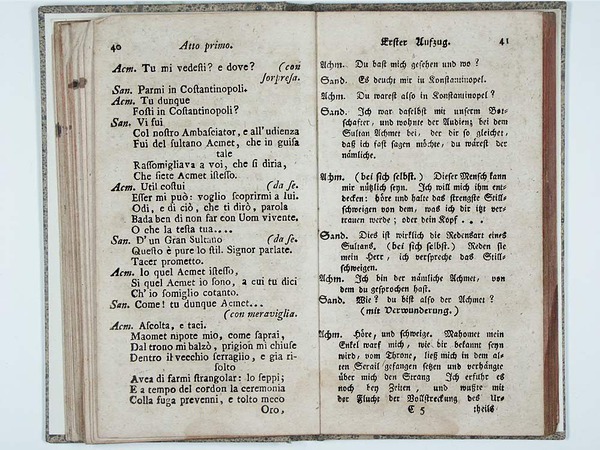 40 Atto primo.
Acm. Tu mi vedesti? e dove? (con
sorpresa.
San. Parmi in Costantinopoli.
Acm. Tu dunque
Fosti in Costantinopoli?
San. Vi fui
Col nostro Ambasciator, e all'udienza
Fui del sultano Acmet, che in guisa
tale
Rassomigliava a voi, che si diria,
Che siete Acmet istesso.
Acm. Util costui (da se.
Esser mi può: voglio scoprirmi a lui.
Odi, e di ciò, che ti dirò, parola
Bada ben di non far con Uom vivente.
O che la testa tua....
San. D'un Gran Sultano (da se.
Questo è pure lo stil. Signor parlate.
Tacer prometto.
Acm. Io quel Acmet istesso,
Si quel Acmet io sono, a cui tu dici
Ch' io somiglio cotanto.
San. Come! tu dunque Acmet...
(con meraviglia.
Acm. Ascolta, e taci.
Maomet nipote mio, come saprai,
Dal trono mi balzò, prigion mi chiuse
Dentro il vecchio serraglio, e gia ri-
solto
Avea di farmi strangolar: lo seppi;
E a tempo del cordon la ceremonia
Colla fuga prevenni, e tolto meco
Oro,
Erster Aufzug. 41
Achm. Du hast mich gesehen und wo?
Sand. Es deucht mir in Konstantinopel.
Achm. Du warest also in Konstantinopel?
Sand. Ich war daselbst mit unserm Bot-
schafter, und wohnte der Audienz bei dem
Sultan Achmet bei, der dir so gleichet,
daß ich fast sagen möchte, du wärest der
nämliche.
Achm. (bei sich selbst.) Dieser Mensch kann
mir nützlich seyn. Ich will mich ihm ent-
decken: höre und halte das strengste Still-
schweigen von dem, was ich dir itzt ver-
trauen werde; oder dein Kopf . . .
Sand. Dies ist wirklich die Redensart eines
Sultans. (bei sich selbst.) Reden sie
mein Herr, ich verspreche das Still-
schweigen.
Achm. Ich bin der nämliche Achmet, von
dem du gesprochen hast.
Sand. Wie? du bist also der Achmet?
(mit Verwunderung.)
Achm. Höre, und schweige. Mahomet mein
Enkel warf mich, wie dir bekannt seyn
wird, vom Throne, ließ mich in dem al-
ten Serail gefangen setzen und verhängte
über mich den Strang Ich erfuhr es
noch bey Zeiten, und wußte mit
der Flucht der Vollstreckung des Ur-
C 5 theils